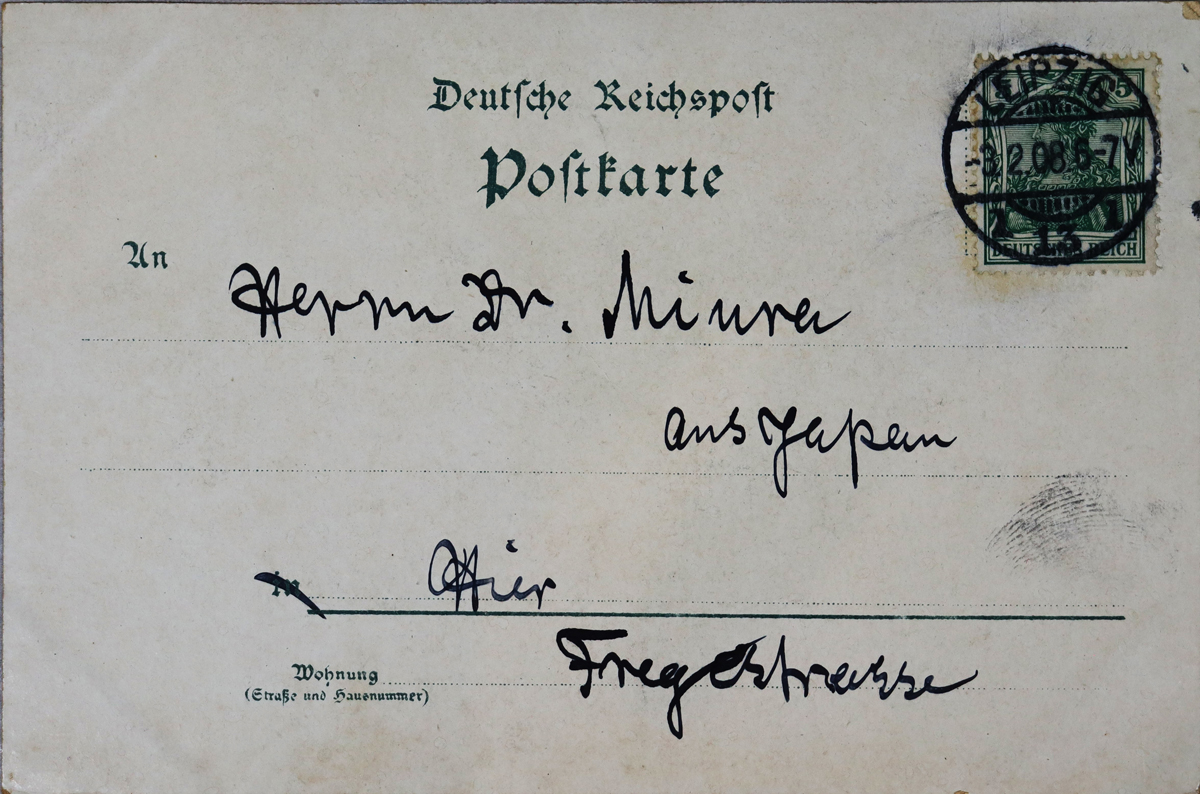 Deutsche Reichspost
Postkarte
LEIPZIG
5
3.2.08.6-7V
1 1
13
DEUTSCHES REICH
An
Herrn Dr. Miura
aus Japan
in
Hier
Wohnung
(Straße und Hausnummer)
Fregestrasse